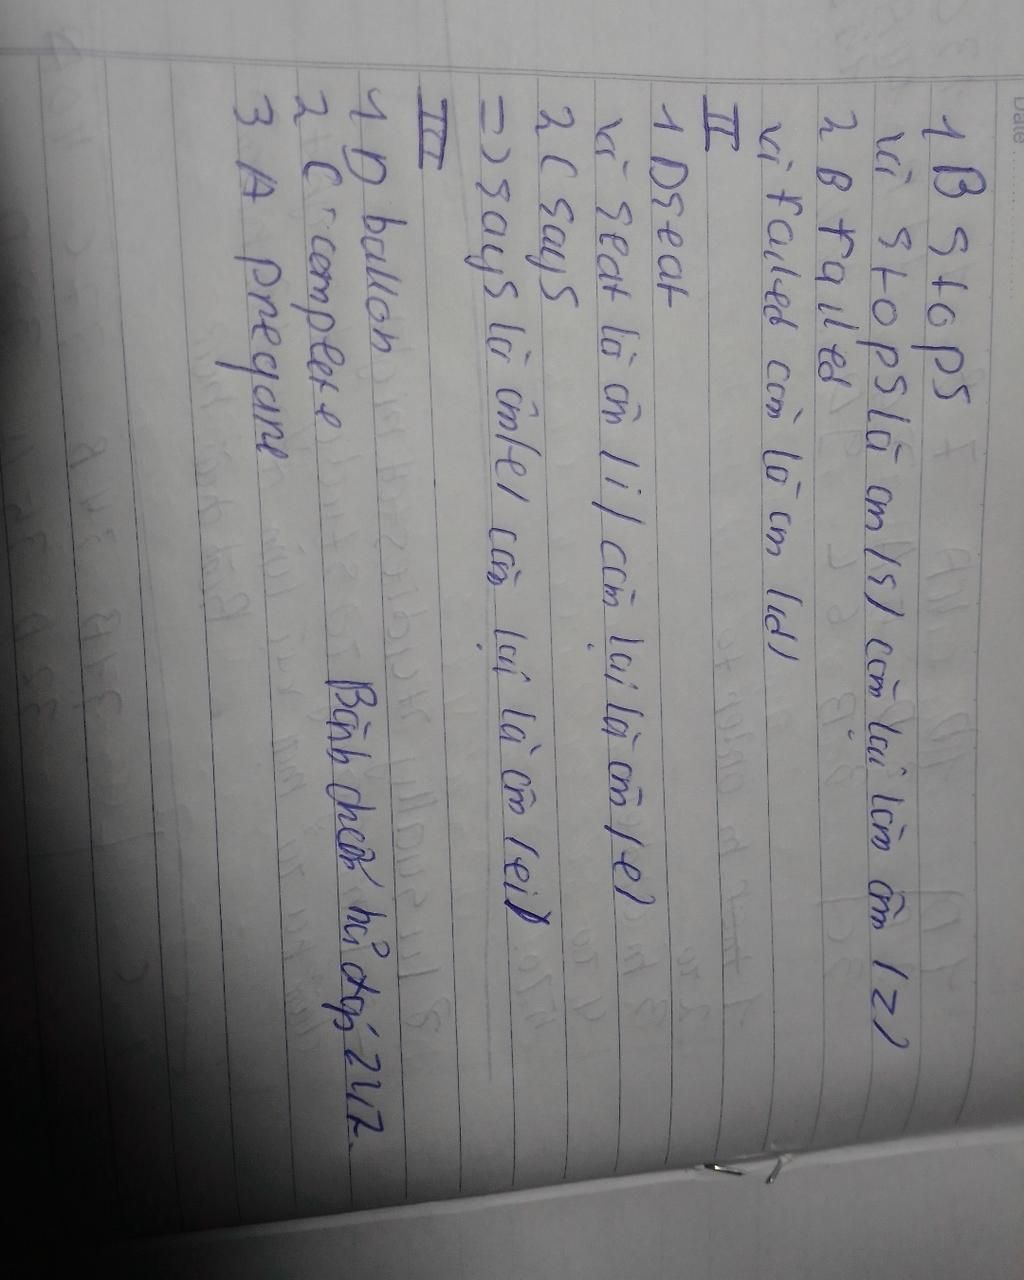 Date
1 B stops
vì stops là âm /s/ còn lại làm âm /z/
2 B failed
vì failed còn là âm /d/
II
1 D seat
vì seat là âm /i/ còn lại là âm /e/
2 C says
=> says là âm /e/ còn lại là âm /ei/
III
1 D ballon
2 C complete
3 A
Bành check hử đáp 24/7.